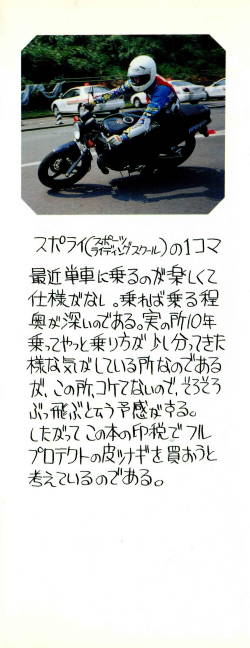 スポライ(スポーツライディングスクール)の1コマ
最近単車に乗るのが楽しくて
仕様がなし。乗れば乗る程
奥が深いのである。実の所10年
乗ってやっと乗り方が少し分ってきた
様な気がしている所なのである
が、この所、コケてないので、そろそろ
ぶっ飛ぶとゆう予感がする。
したがって この本の印税で フル
プロテクトの皮ツナギを買おうと
考えているのである。